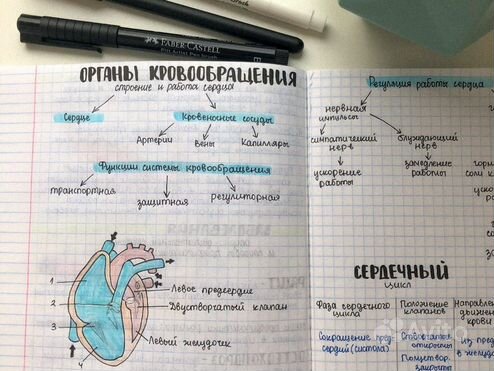 FABER-CASTELL
ОРГАНЫ КРОВООБРАЩЕНИЯ
строение и работа сердца
Сердце
Кровеносные сосуды
Артерии
Вены
Капилляры
Функции системы кровообращения
транспортная
защитная
регуляторная
1
2
3
4
Левое предсердие
Двустворчатый клапан
Левый желудочек
Регуляция работы сердца
нервная
импульсы
симпатический
нерв
блуждающий
нерв
ускорение
работы
замедление
работы
СЕРДЕЧНЫЙ
цикл
Фаза сердечного
цикла
Положение
клапанов
Направлен
движения
крови
Сокращение пред-
сердий (систола)
Створчатые
открыты
Полулетвор.
закрыты
из пред
в желудо
Avito